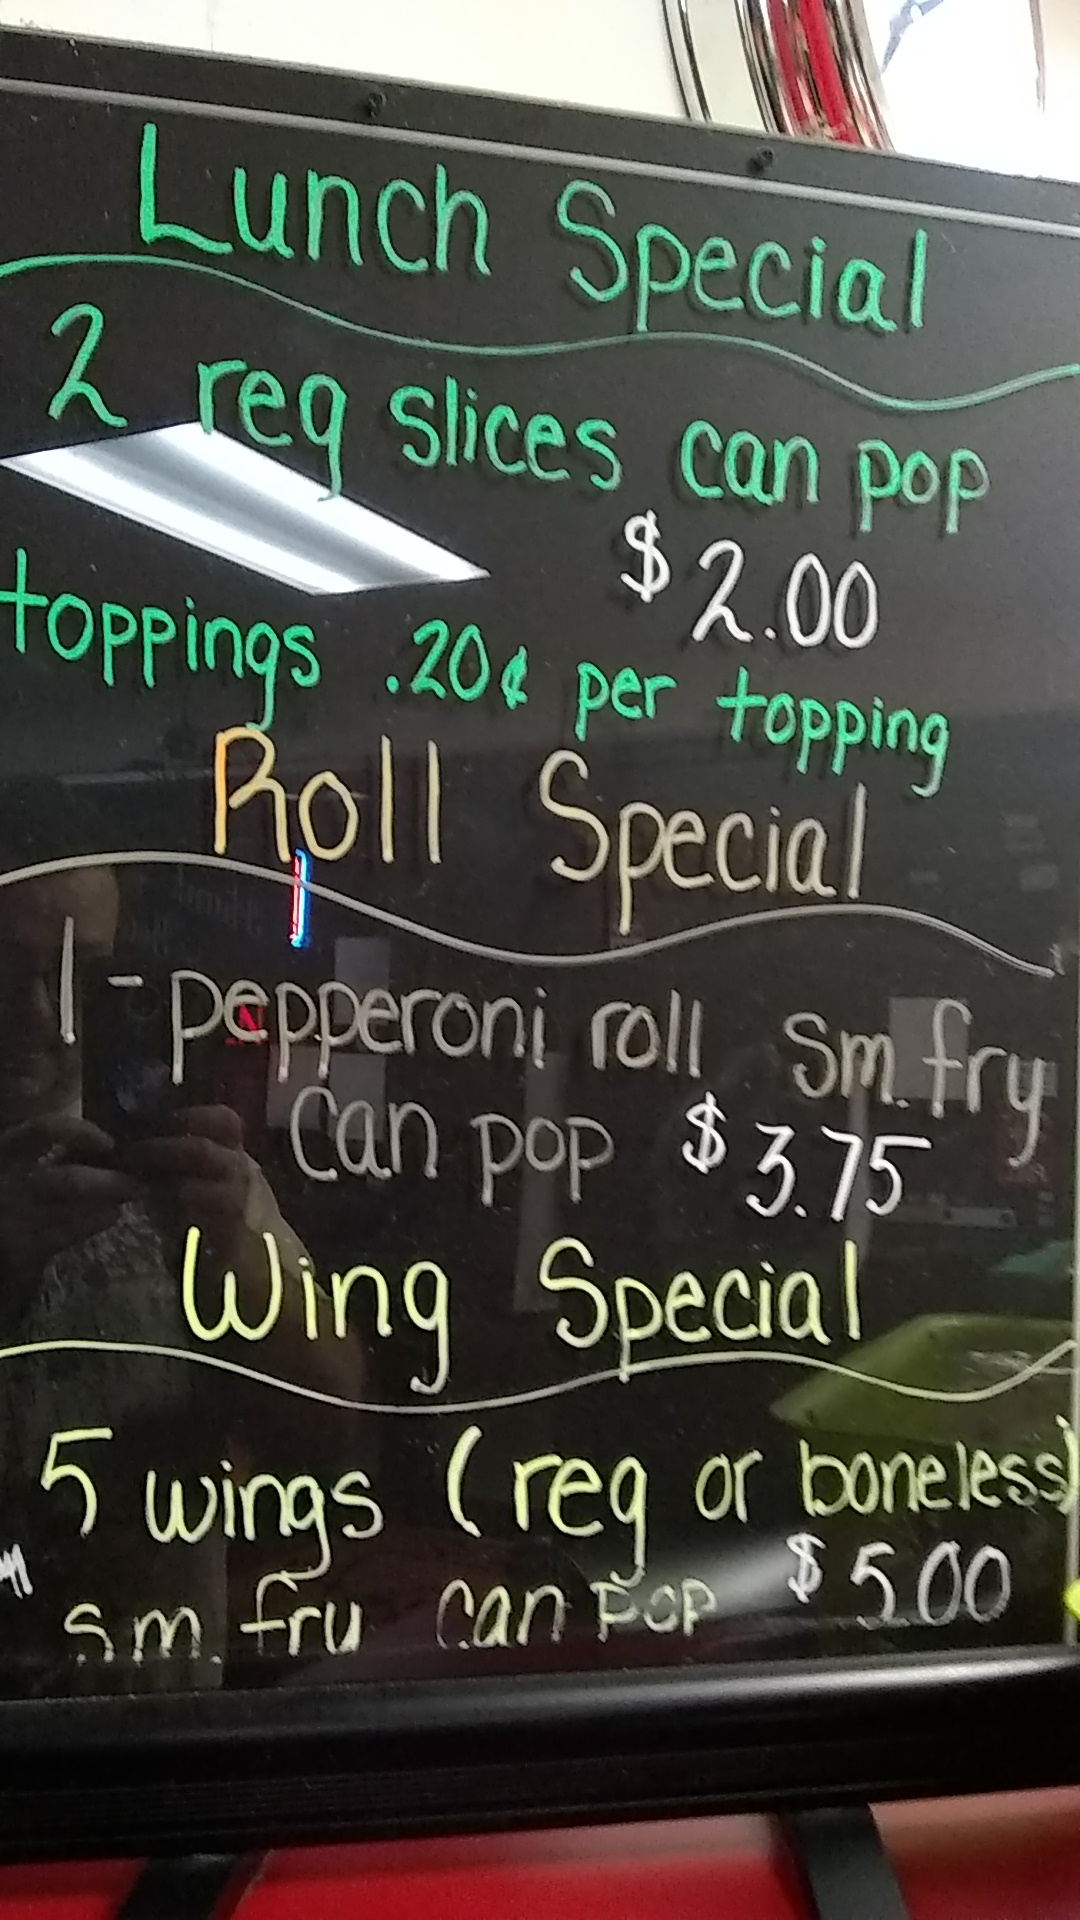 Lunch Special
2 reg slices can pop
$2.00
toppings .20¢ per topping
Roll Special
1 - pepperoni roll sm. fry
can pop $3.75
Wing Special
5 wings (reg or boneless)
sm. fry can pop $5.00